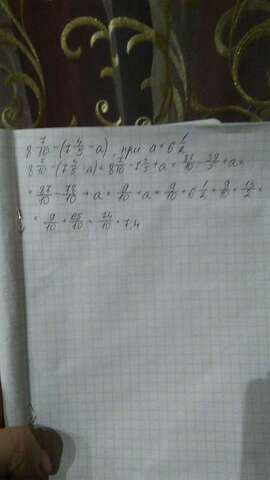 8 7/10 - (7 4/5 - a), при a = 6 1/2
8 7/10 - (7 4/5 - a) = 8 7/10 - 7 4/5 + a = 87/10 - 39/5 + a =
= 87/10 - 78/10 + a = 9/10 + a = 9/10 + 6 1/2 = 9/10 + 13/2 =
= 9/10 + 65/10 = 74/10 = 7,4